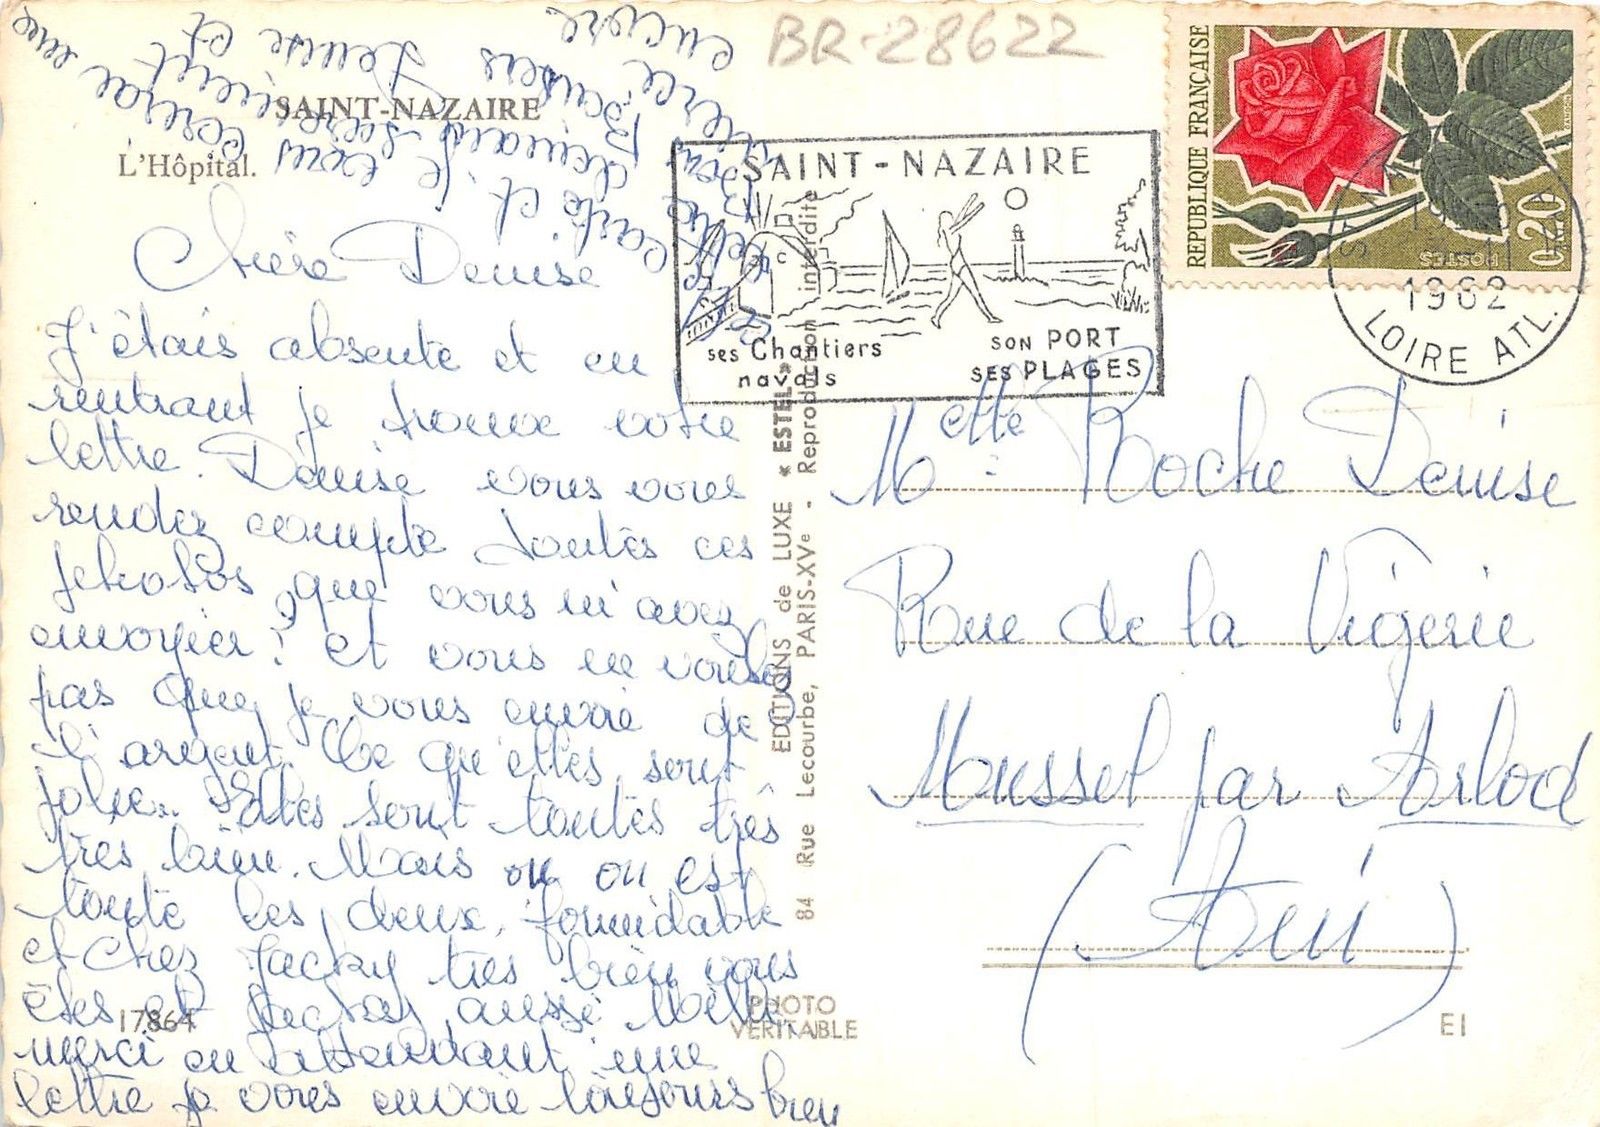 BR-28622
SAINT-NAZAIRE
L'Hôpital.
Chère Denise
J'étais absente et en
rentrant je trouve votre
lettre. Denise vous vous
rendez compte toutes ces
photos que vous m'avez
envoyier? et vous ne voulez
pas que je vous envoie de
l'argent. Ce qu'elles sont
jolie. Elles sont toutes très
très bien. Mais ou on est
toute les deux, formidable
et chez Jacky très bien vous
êtes et aussi Mille
merci en attendant une
lettre je vous envoie toujours bien
cette petite
carte et je vous écrirai une
demain
Bons baisers Denise et
merci
encore
17864
EDITIONS de LUXE « ESTEL »
84 Rue Lecourbe, PARIS-XVe - Reproduction interdite
PHOTO
VERITABLE
SAINT-NAZAIRE
ses Chantiers
navals
SON PORT
SES PLAGES
REPUBLIQUE FRANÇAISE
0,20
POSTES
ST NAZ
1962
LOIRE ATL.
Melle Roche Denise
Rue de la Vigerie
Mussel par Arlod
(Ain)
EI